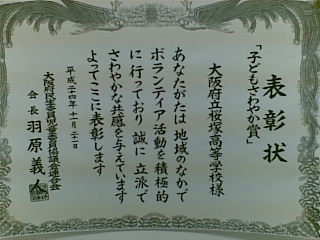 表彰状
「子どもさわやか賞」
大阪府立桜塚高等学校様
あなたがたは地域のなかで
ボランティア活動を積極的
に行っており誠に立派で
さわやかな共感を与えています
よってここに表彰します
平成二十四年十一月二十一日
大阪府民生委員児童委員協議会連合会
会長 羽原義